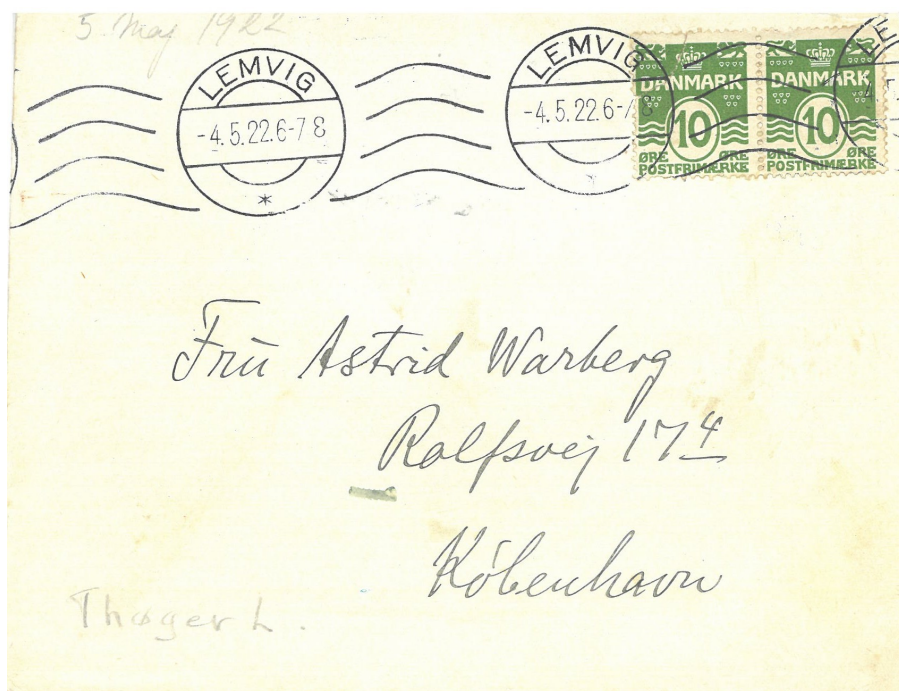 5. Maj 1922
LEMVIG
-4.5.22.6-7 8
*
LEMVIG
-4.5.22.6-7
DANMARK
10
ØRE ØRE
POSTFRIMÆRKE
DANMARK
10
ØRE ØRE
POSTFRIMÆRKE
LE
Frū Astrid Warberg
Rolfsvej 17 4
København
Thøger L.